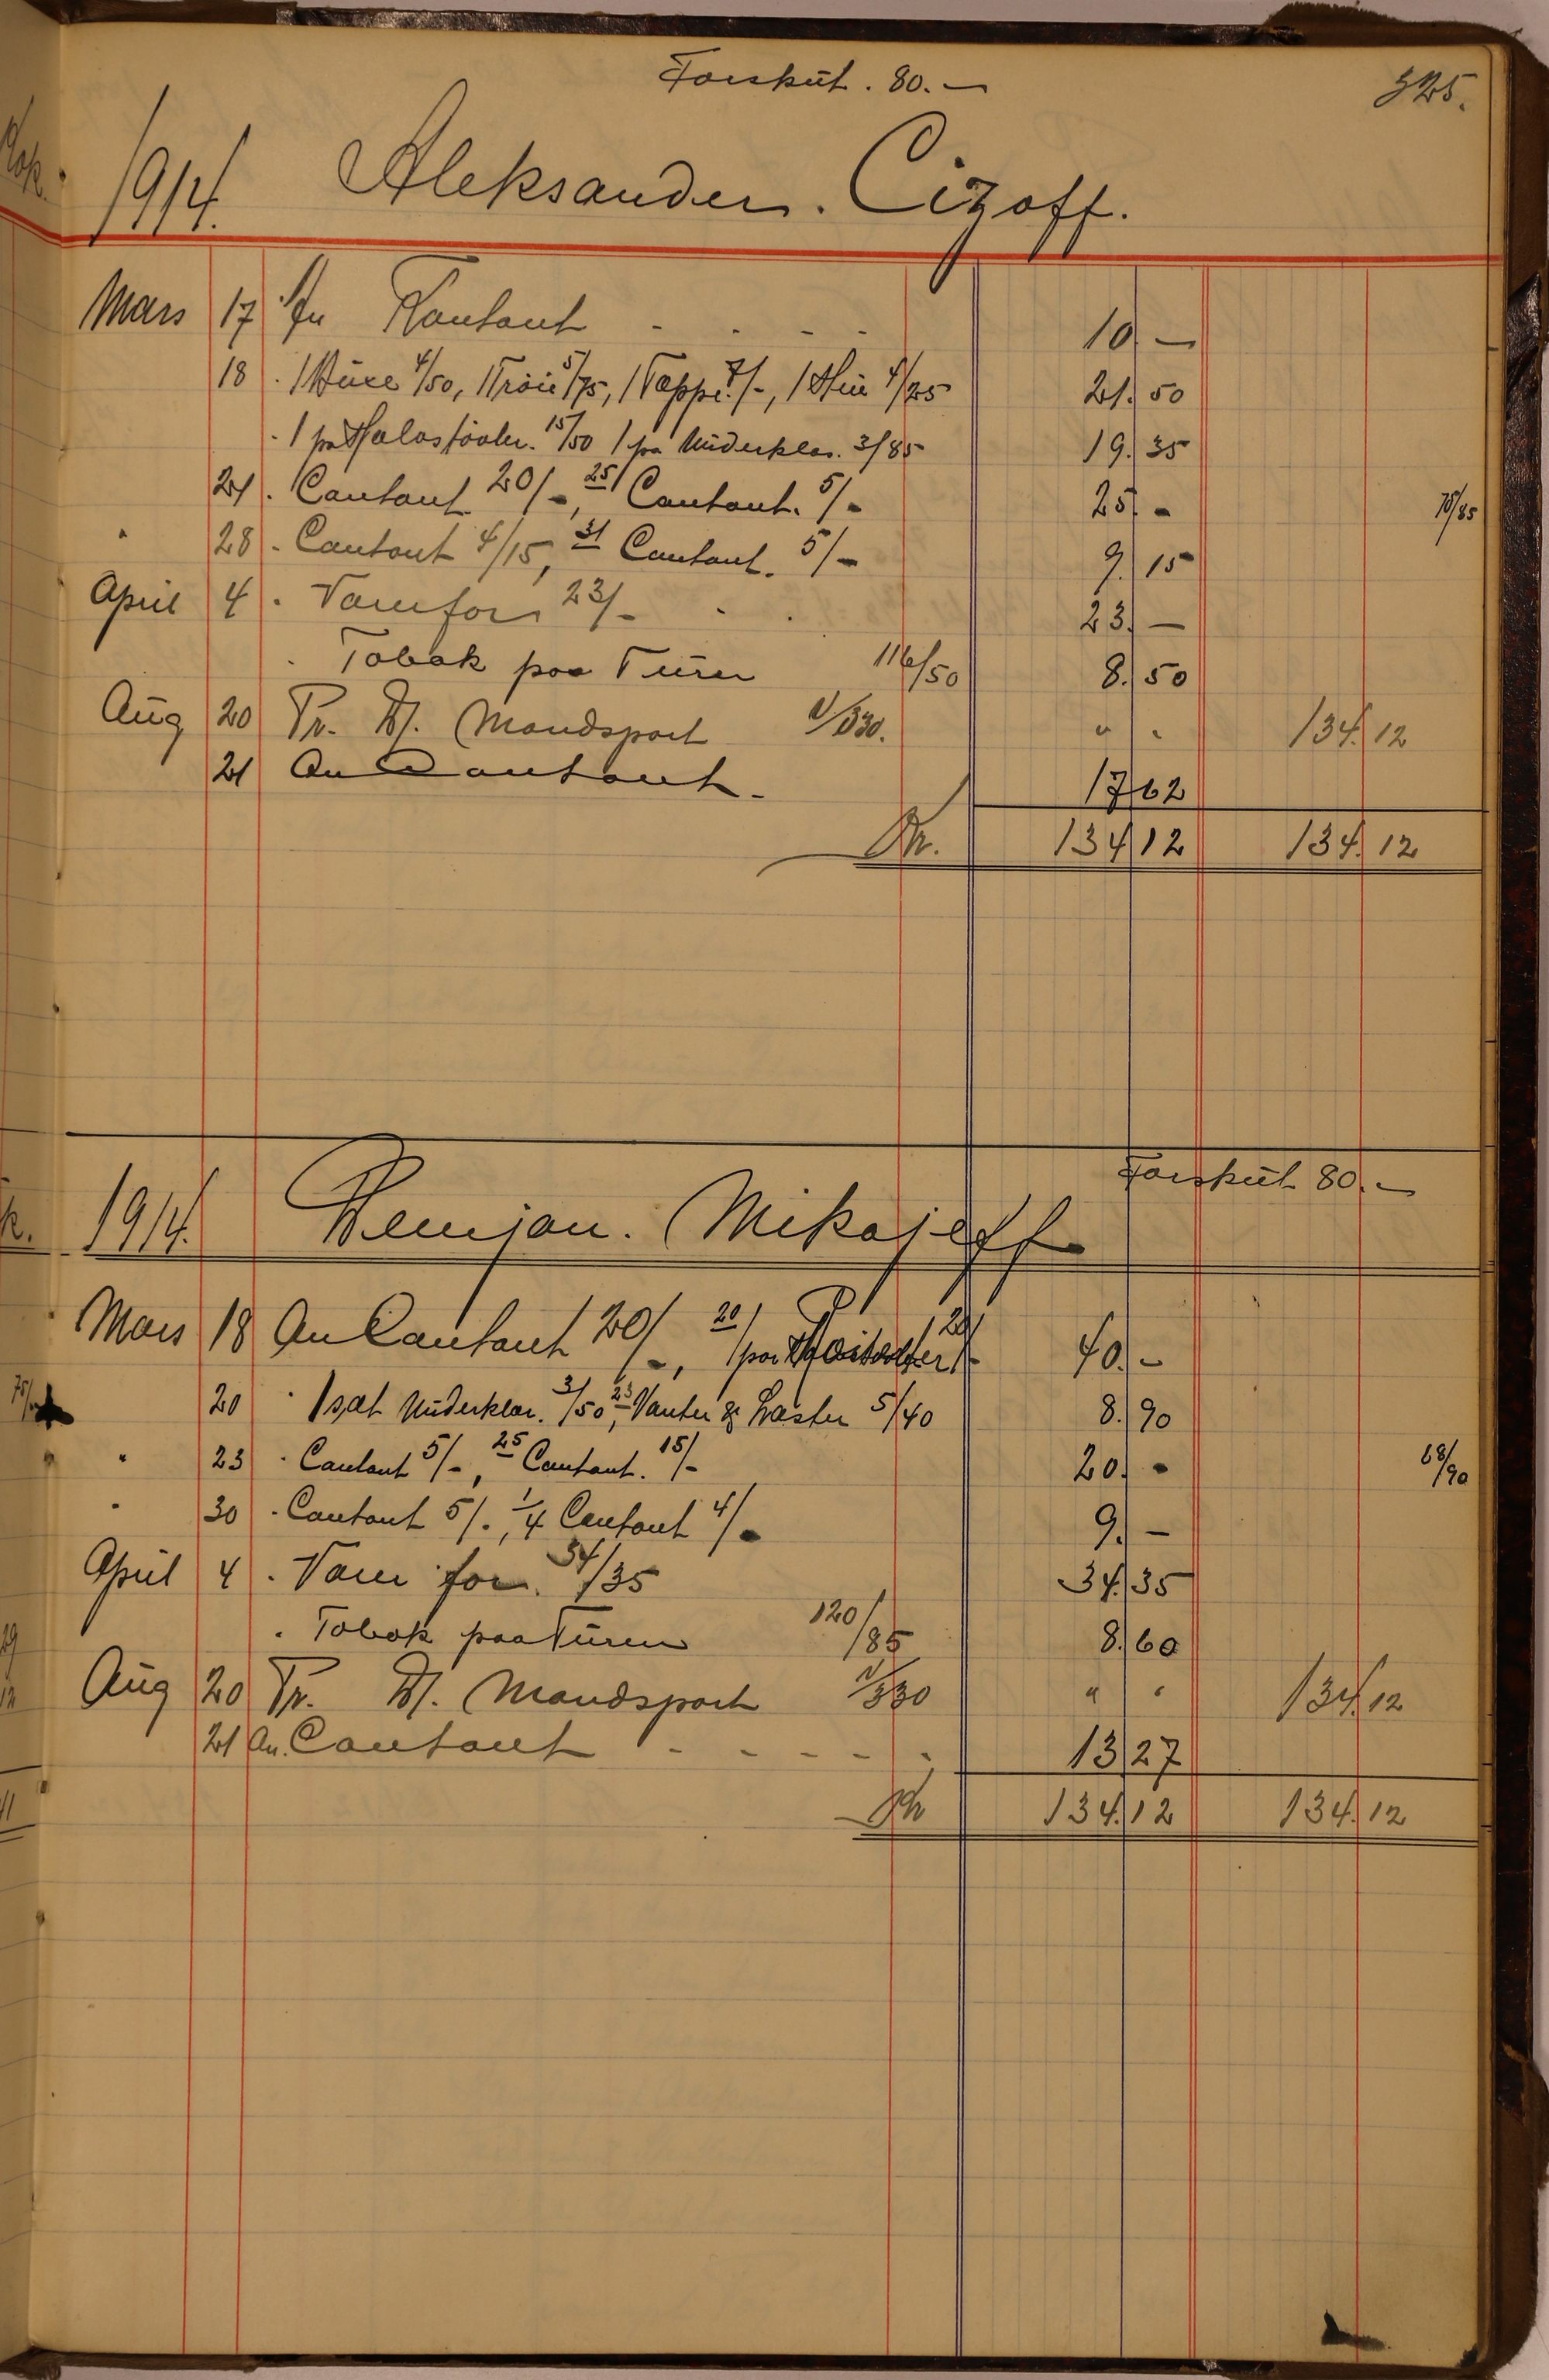 Forskūt. 80.—
325.
1914. Aleksander. Cizoff.
Mars 17 An Kontant - - - - 10 —
18 . 1 Būxe 4/50, 1 Tröie 5/75, 1 Tæppe 7/-, 1 4/25 21. 50
. 1 pa 15/50 1 pa Ūnderklær. 3/85 19. 35
21 . Contant 20/-, 25 Contant. 5/- 25. - 75/85
" 28 . Contant 4/15, 31 Contant. 5/- 9. 15
April 4 . Varer for 23/- . . 23. —
. Tobak paa Tūren 116/50 8. 50
Aug 20 Pr. Mandspart V/330. " " 134. 12
21 An Contant - 17 62
Kr. 134 12 134. 12
Forskūt 80.—
1914. Demjan. Mikajeff
Mars 18 An Contant 20/-, 20 1 par 20/- 40. -
20 " 1 sæt Ūnderklær. 3/50, 23 Vanter & Læster 5/40 8. 90
" 23 . Contant 5/-, 25 Contant. 15/- 20. - 68/90
" 30 . Contant 5/-, 1/4 Contant 4/- 9. —
April 4 . Varer for. 34/35 34. 35
. Tobak paa Tūren 120/85 8. 60
Aug 20 Pr. Mandspart V/330 " " 134. 12
21 An. Contant - - - - - 13 27
Kr 134. 12 134. 12